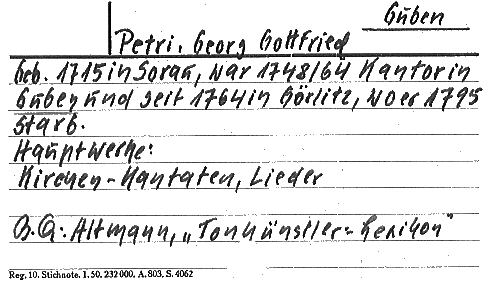 Guben
Petri, Georg Gottfried
Geb. 1715 in Sorau, war 1748/64 Kantor in
Guben und seit 1764 in Görlitz, wo er 1795
starb.
Hauptwerke:
Kirchen-Kantaten, Lieder
B.Q.: Altmann, „Tonkünstler-Lexikon"
Reg. 10. Stichnote. 1. 50. 232 000. A. 803. S. 4062